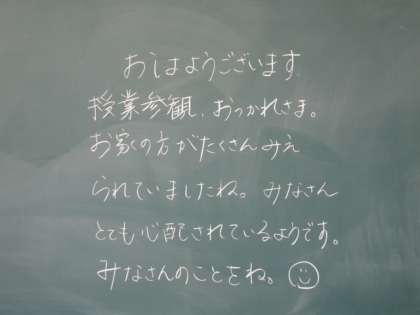 おはようございます
授業参観、おつかれさま。
お家の方がたくさんみえ
られていましたね。みなさん
とても心配されているようです。
みなさんのことをね。